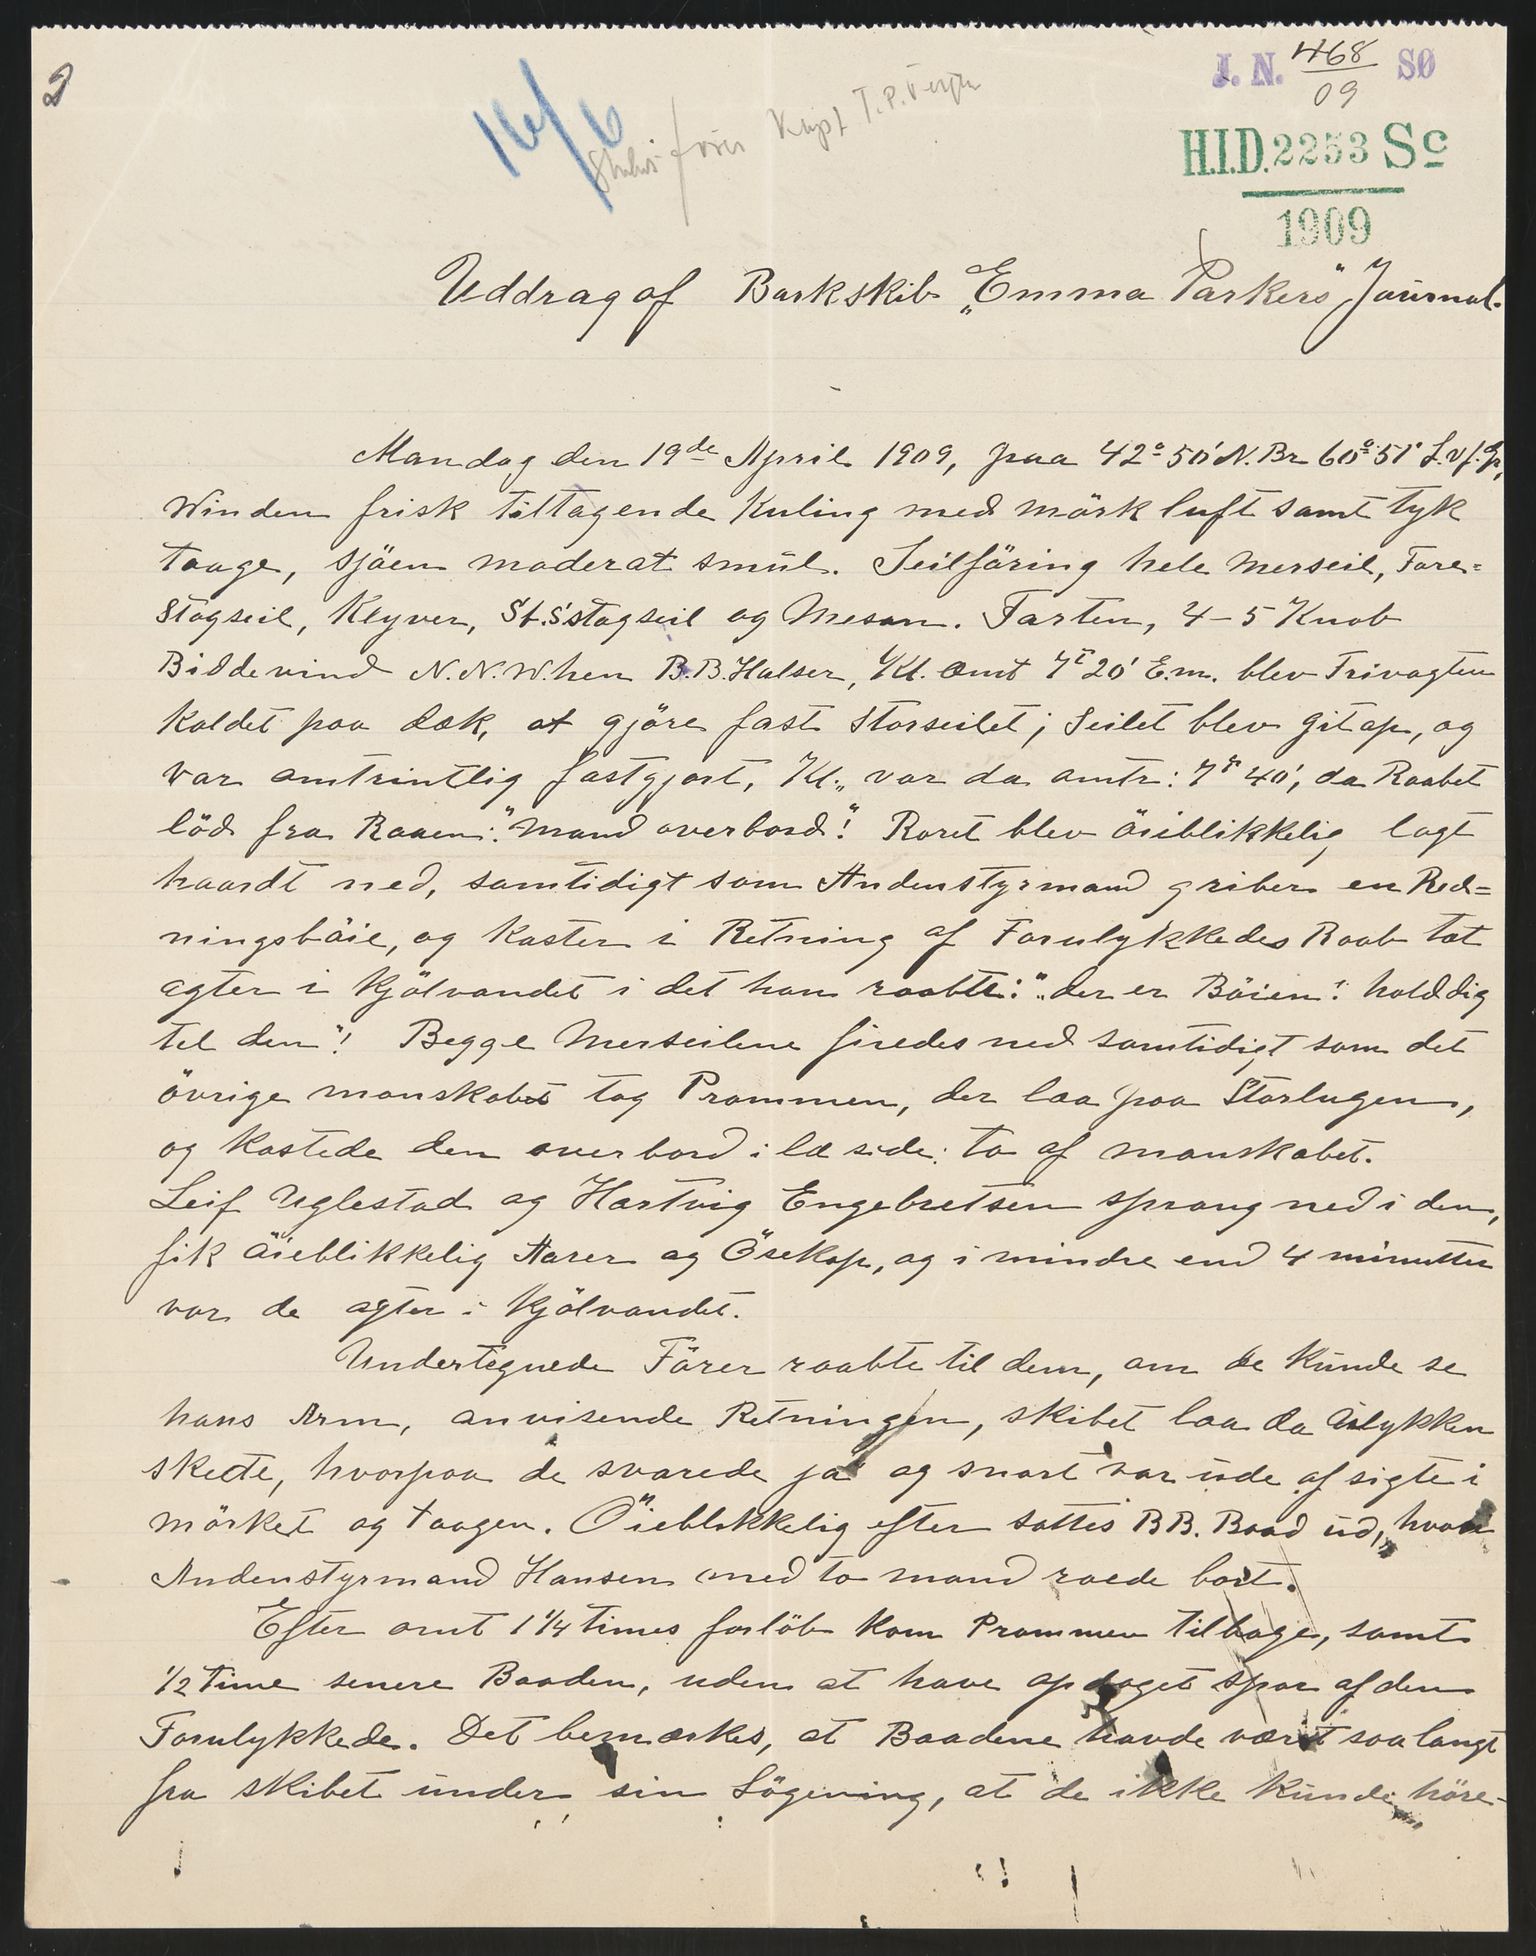 2
J. N. 468 SØ
09
16/6
Kapt T. P.
H.I.D. 2253 Sc
1909
Uddrag af Barkskib „Emma Parkers" Journal.
Mandag den 19de April 1909, paa 42° 50' N. Br 60° 51' L. v. f. Gr,
Winden frisk tiltagende Kuling med mörk luft samt tyk
taage, sjöen moderat smül. Seilföring hele Merseil, Fore=
Stagseil, Klyver, St. S'stagseil og Mesan. Farten, 4–5 Knob
Bidevind N. N. W. hen B. B. Halser, Kl. omt 7t 20' E.m. blev Frivagten
Kaldet paa dæk, at gjöre fast Storseilet; Seilet blev git op, og
var omtrintlig fastgjort, Kl. „ var da omtr: 7t 40', da Raabet
löd fra Raaen: "Mand overbord"! Roret blev öiiblikkelig lagt
haardt ned, samtidigt som Andenstyrmand griber en Red=
ningsböie, og kaster i Retning af Forulykkedes Raab tæt
agter i Kjölvandet i det han raabte: "der er Böien"! hold dig
til den"! Begge Merseilene firedes ned samtidigt som det
övrige manskabet tog Prammen, der laa paa Storlugen,
og kastede den overbord i læ side: to af manskabet.
Leif Uglestad og Hartvig Engebretsen sprang ned i den,
fik öieblikkelig Aarer og Ösekop, og i mindre end 4 minutter
var de agter i Kjölvandet.
Undertegnede Förer raabte til dem, om de Künde se
hans Arm, anvisende Retningen, skibet laa da Ulykken
skedte, hvorpaa de svarede ja og snart var üde af sigte i
mörket og taagen. Öieblikkelig efter sattes BB. Baad üd, hvori
Andenstyrmand Hansen med to mand roede bort.
Efter omt 1 1/4 times forlöb kom Prammen tilbage, samt
1/2 Time senere Baaden, uden at have opdaget spor af den
Forulykkede. Det bemærkes, at Baadene havde været saa langt
fra skibet ünder sin Sögening, at de ikke Künde höre